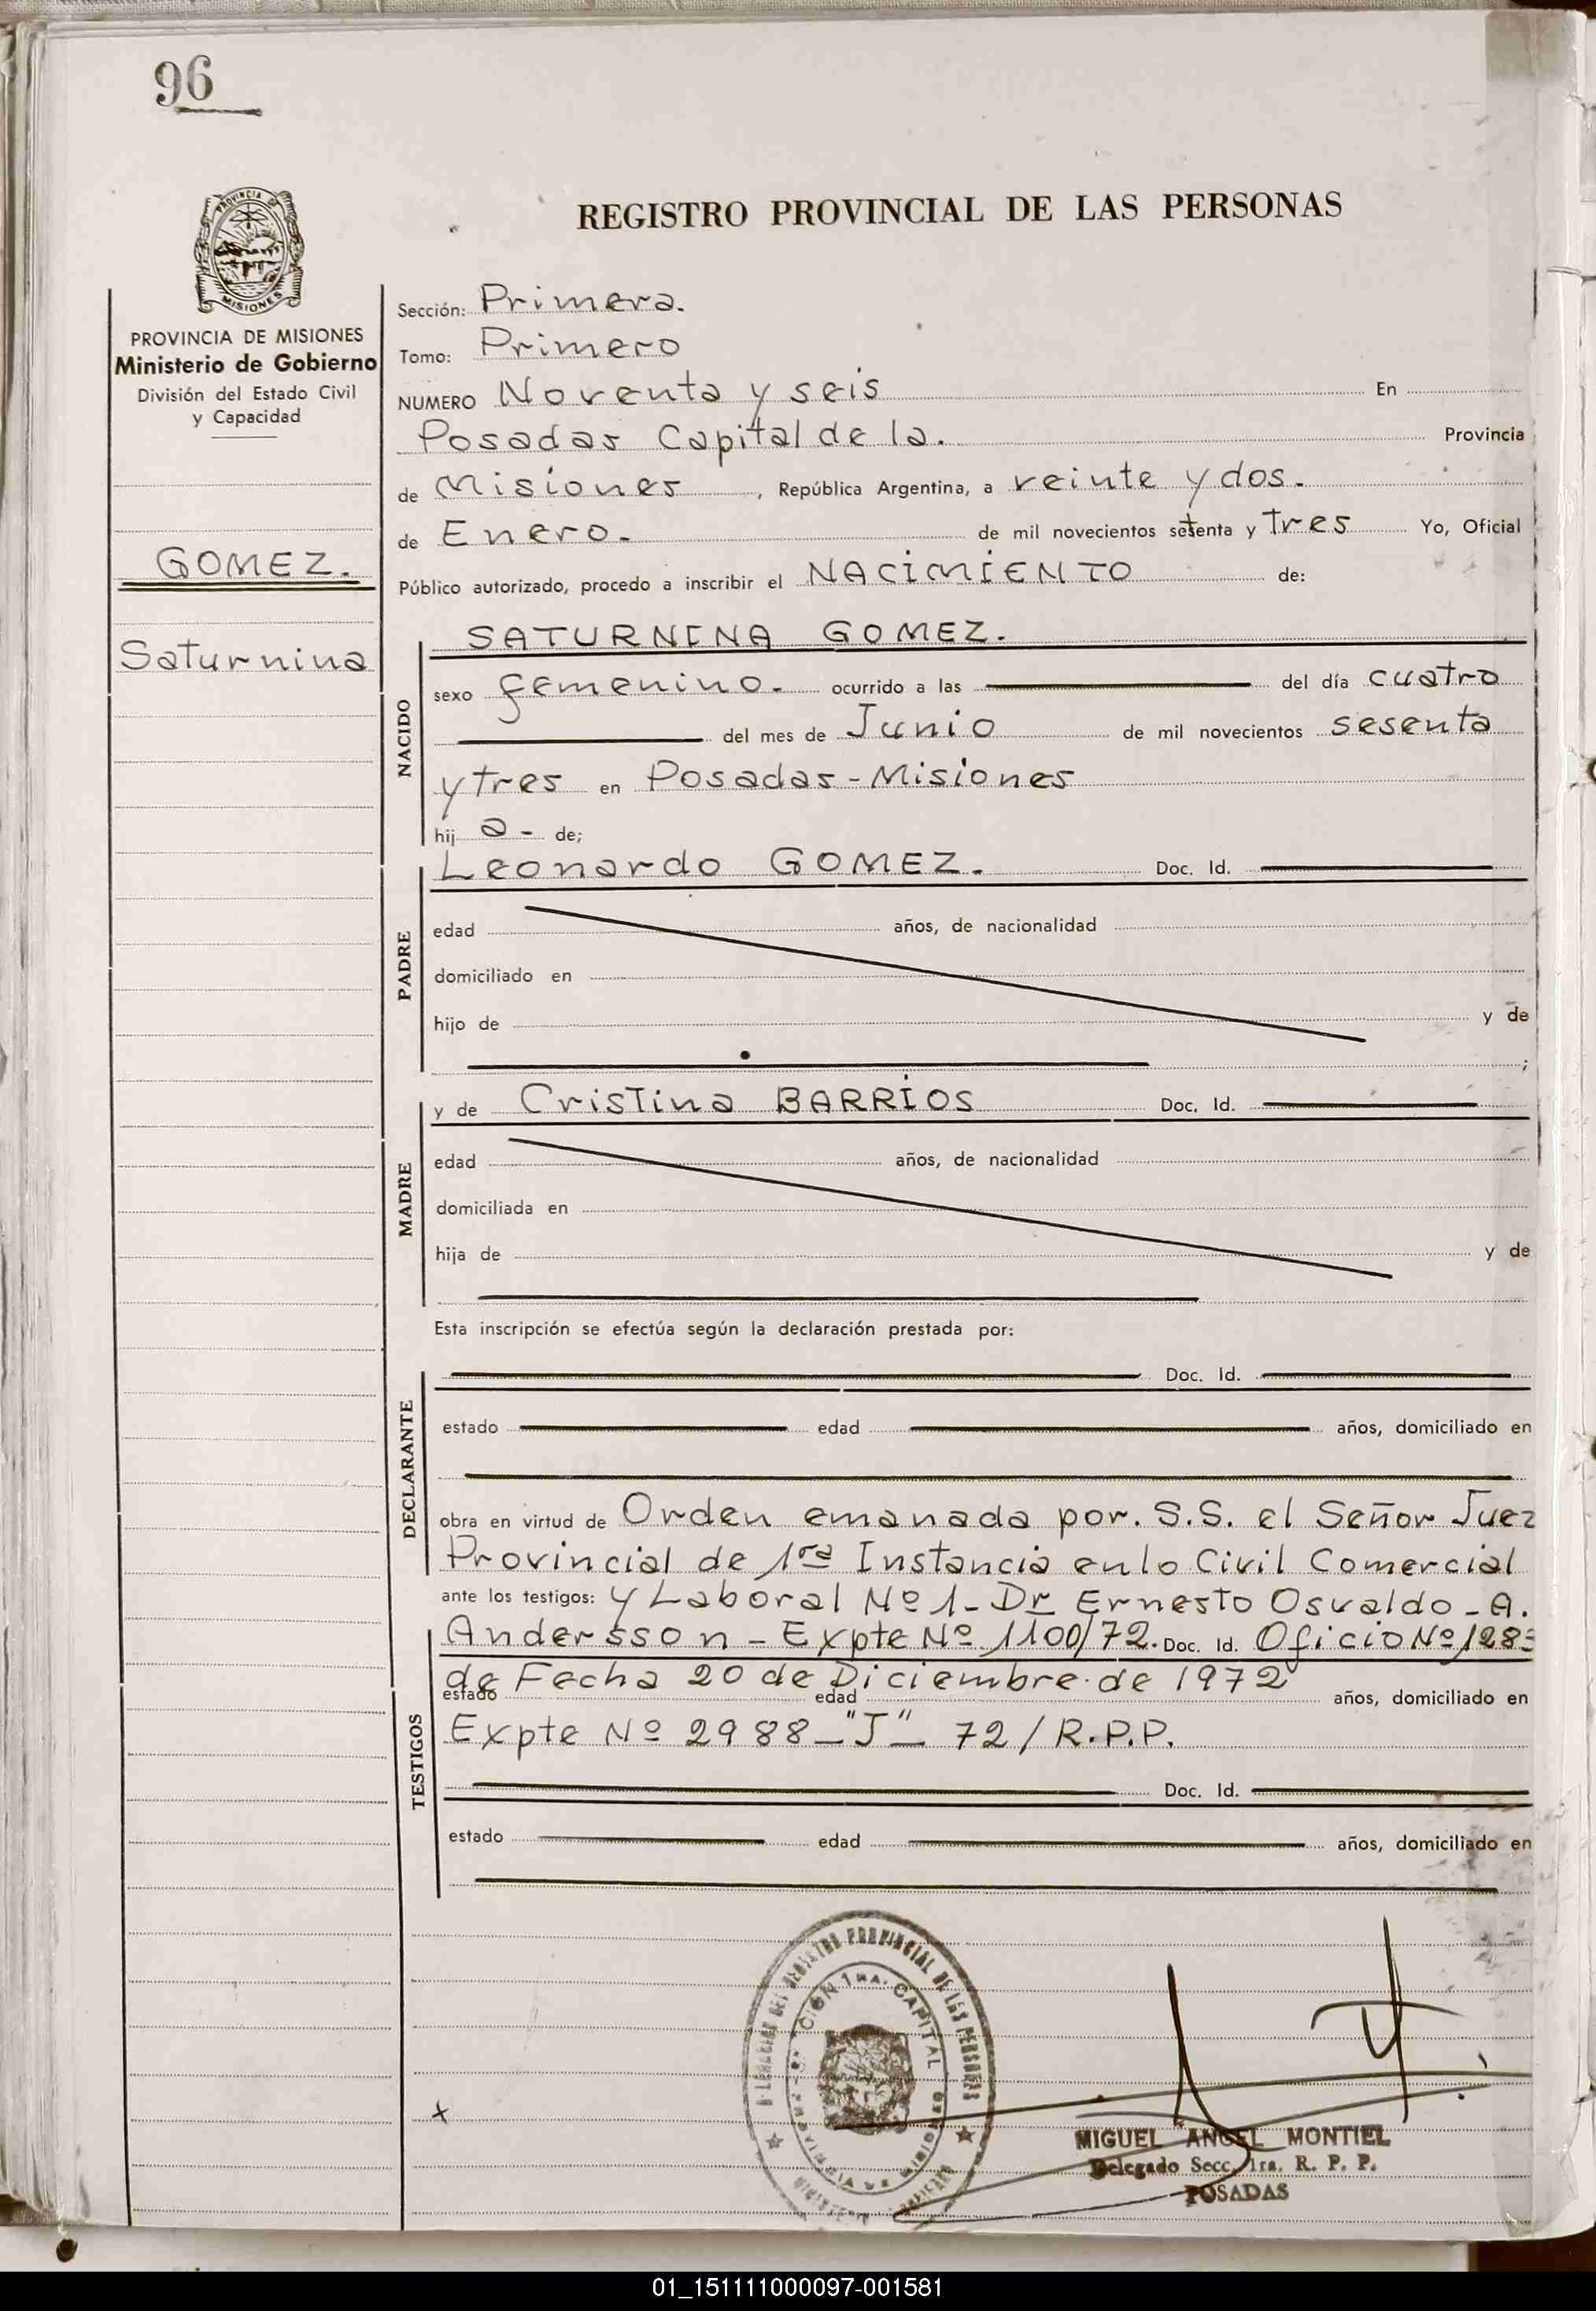 96
PROVINCIA DE
MISIONES
REGISTRO PROVINCIAL DE LAS PERSONAS
PROVINCIA DE MISIONES
Ministerio de Gobierno
División del Estado Civil
y Capacidad
GOMEZ.
Saturnina
Sección: Primera.
Tomo: Primero
NUMERO Noventa y seis En
Posadas Capital de la. Provincia
de Misiones, República Argentina, a veinte y dos.
de Enero. de mil novecientos setenta y Tres Yo, Oficial
Público autorizado, procedo a inscribir el NACIMIENTO de:
NACIDO
SATURNINA GOMEZ.
sexo femenino. ocurrido a las del día cuatro
del mes de Junio de mil novecientos sesenta
y tres en Posadas - Misiones
hij a - de;
PADRE
Leonardo GOMEZ. Doc. Id.
edad años, de nacionalidad
domiciliado en
hijo de y de
;
MADRE
y de Cristina BARRIOS Doc. Id.
edad años, de nacionalidad
domiciliada en
hija de y de
Esta inscripción se efectúa según la declaración prestada por:
DECLARANTE
Doc. Id.
estado edad años, domiciliado en
obra en virtud de Orden emanada por. S.S. el Señor Juez
Provincial de 1ra Instancia en lo Civil Comercial
ante los testigos: y Laboral Nº 1 - Dr Ernesto Osvaldo - A.
TESTIGOS
Andersson - Expte Nº 1100/72. Doc. Id. Oficio Nº 1283
de Fecha 20 de Diciembre de 1972
estado edad años, domiciliado en
Expte Nº 2988 - "J" - 72 / R.P.P.
Doc. Id.
estado edad años, domiciliado en
DEL REGISTRO PROVINCIAL DE LAS PERSONAS
1RA. CAPITAL
MIGUEL ANGEL MONTIEL
Delegado Secc. 1ra. R. P. P.
POSADAS
01_151111000097-001581